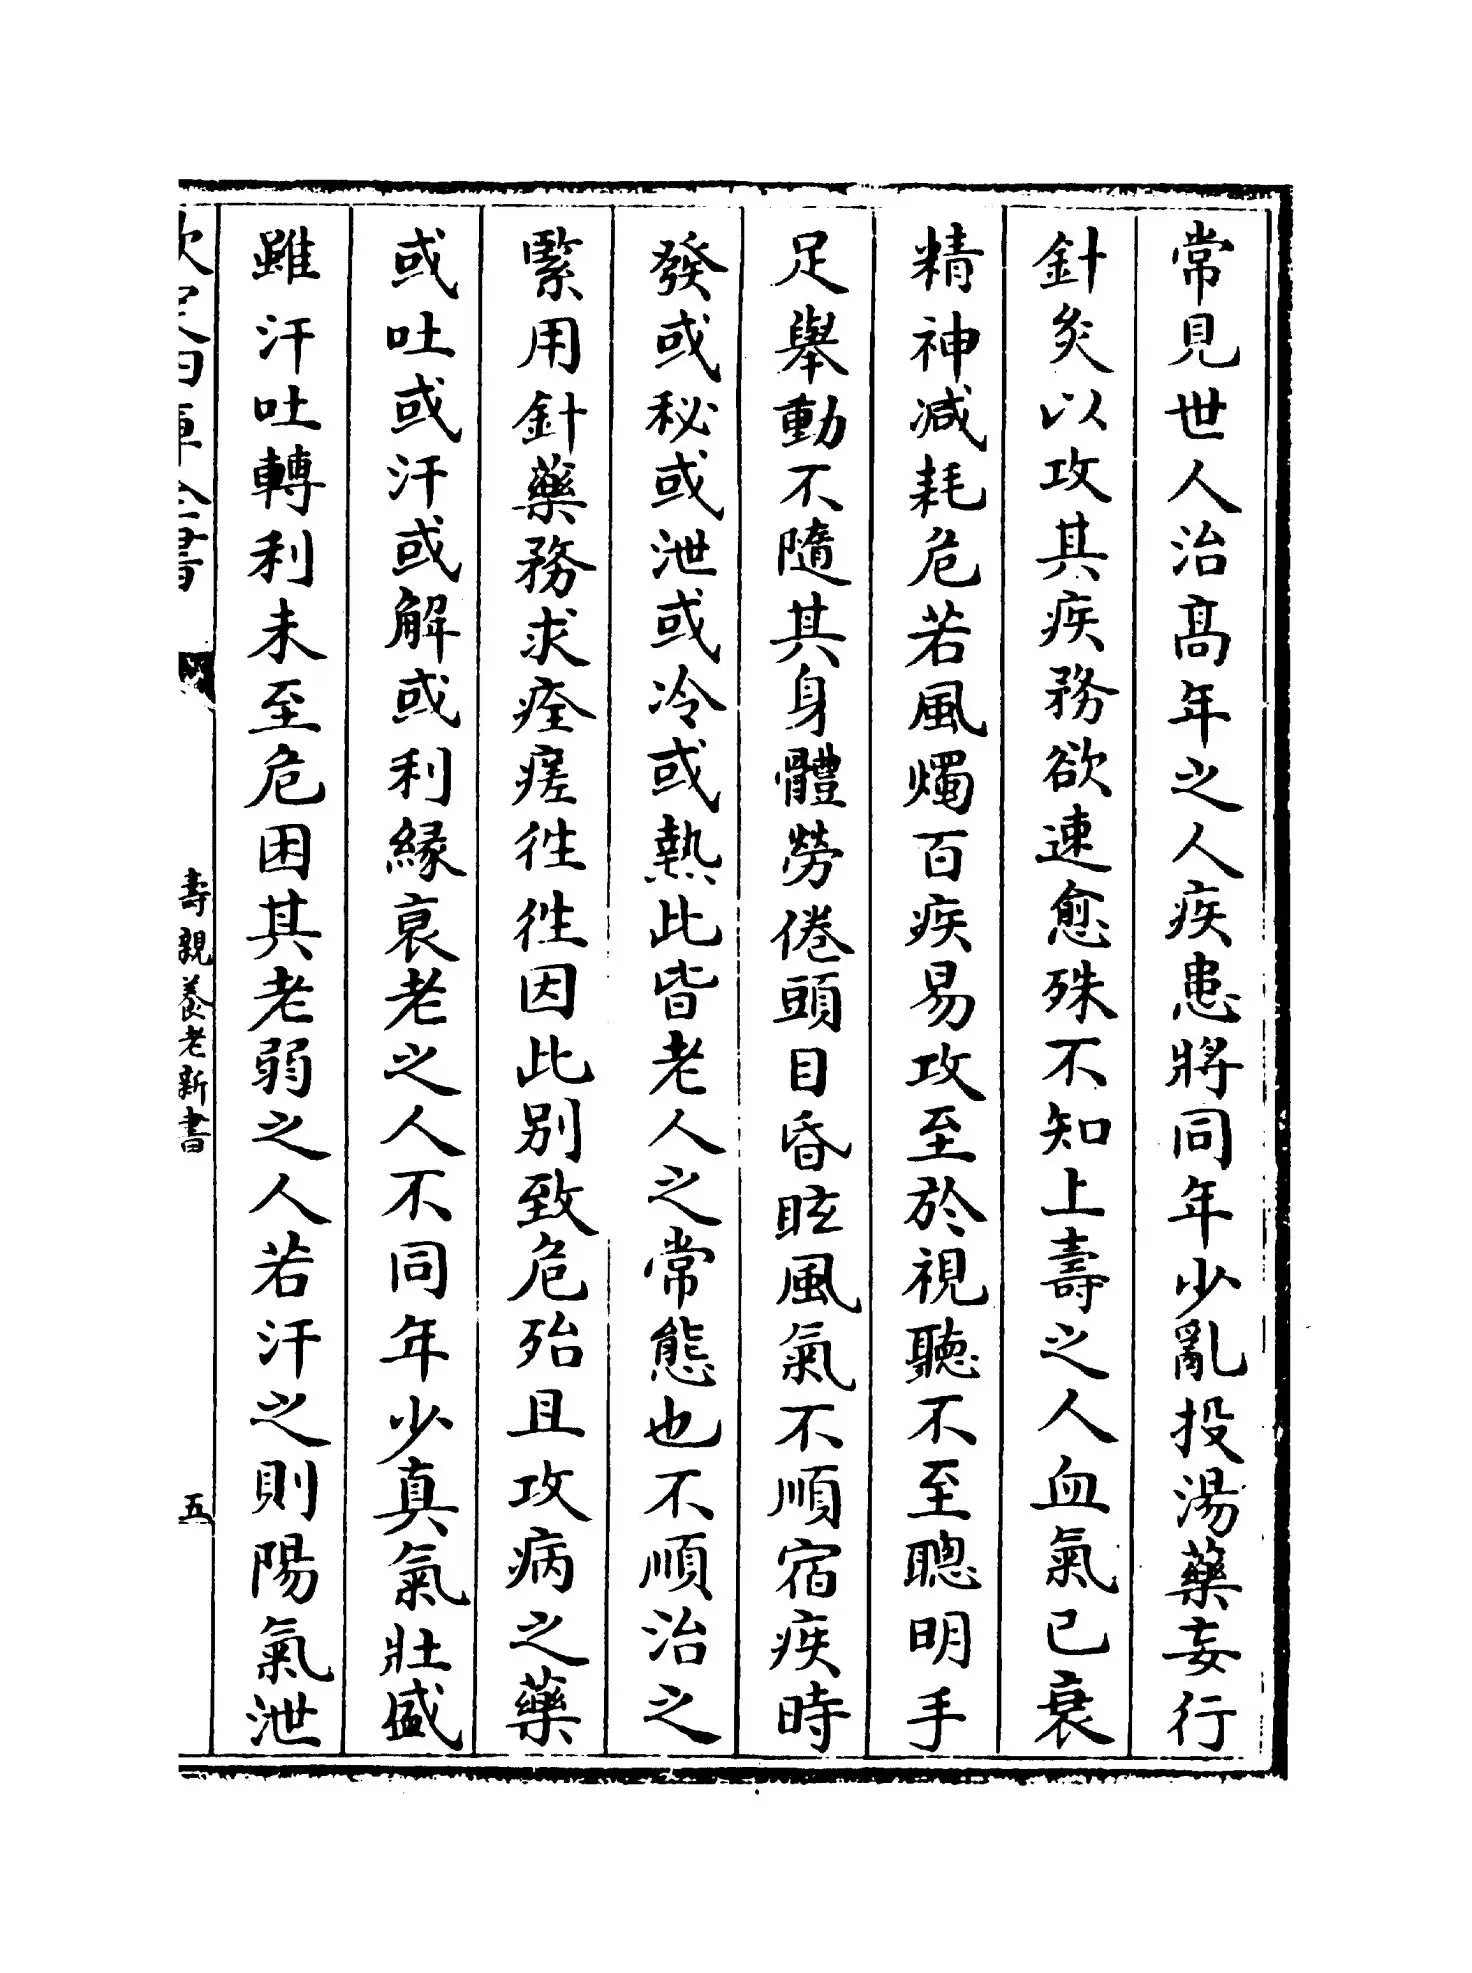 常見世人治高年之人疾患將同年少亂投湯藥妄行
針灸以攻其疾務欲速愈殊不知上壽之人血氣已衰
精神减耗危若風燭百疾易攻至於視聽不至聰明手
足舉動不隨其身體勞倦頭目昏眩風氣不順宿疾時
發或秘或泄或冷或熱此皆老人之常態也不順治之
緊用針藥務求痊瘥徃徃因此別致危殆且攻病之藥
或吐或汗或解或利緣衰老之人不同年少真氣壯盛
雖汗吐轉利未至危困其老弱之人若汗之則陽氣泄
欽定四庫全書
壽親養老新書
五